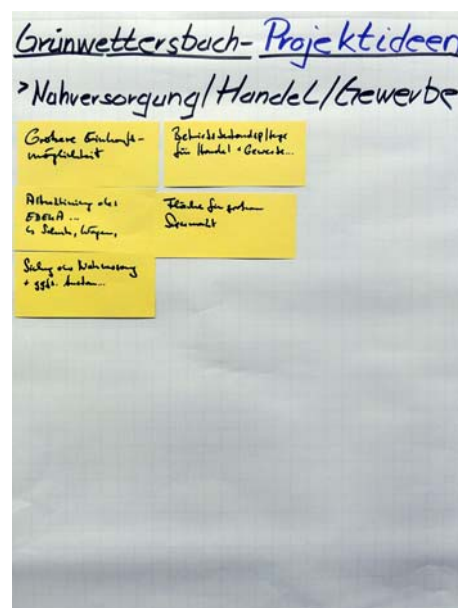 Grünwettersbach- Projektideen
> Nahversorgung/Handel/Gewerbe
Größere Einkaufs-
möglichkeit
Betriebsbestandspflege
für Handel + Gewerbe...
des
EDEKA ...
Fläche für großen
der Nahversorgung
+ ggfs. Ausbau...